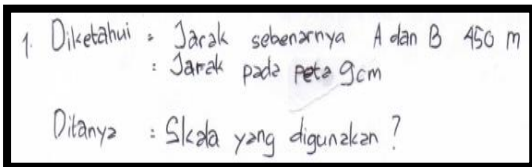 1. Diketahui : Jarak sebenarnya A dan B 450 m
: Jarak pada peta 9cm
Ditanya : Skala yang digunakan ?